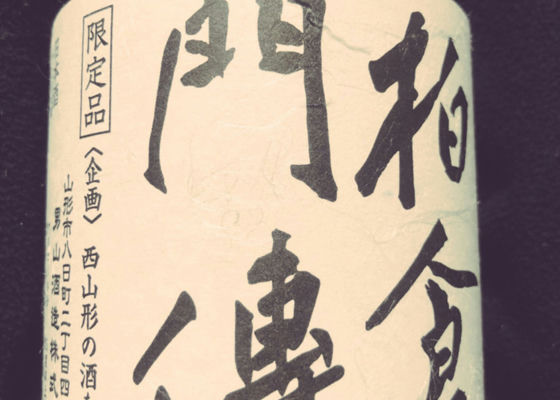 柏倉
門傳
限定品
〈企画〉西山形の酒を
山形市八日町二丁目四
男山酒造株式